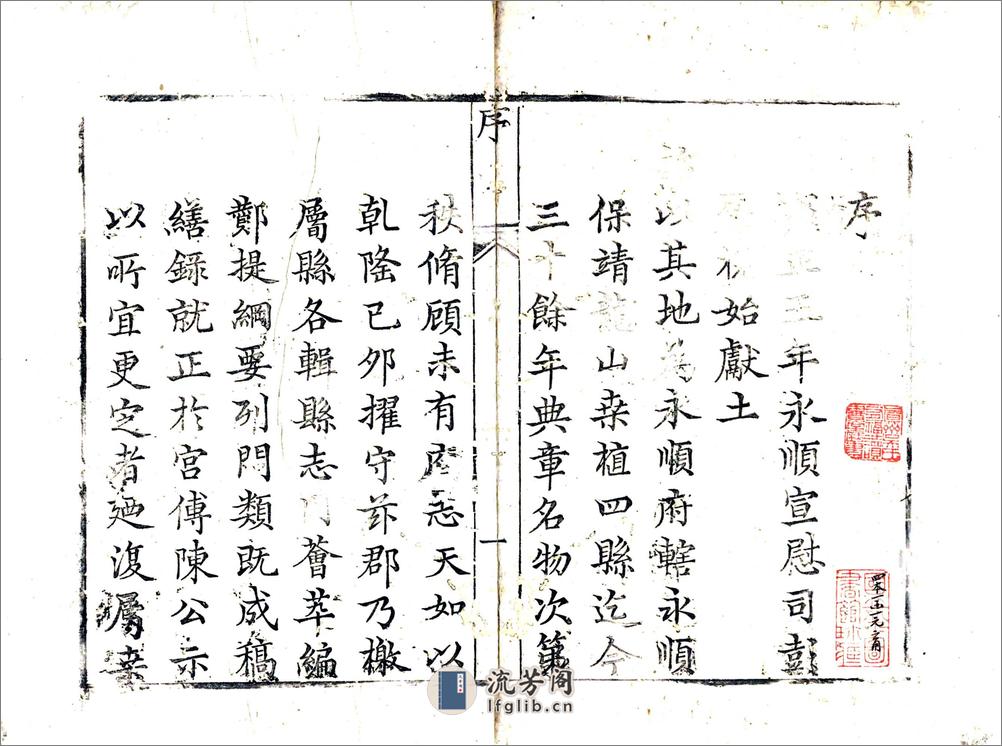 序
正五年永順宣慰司彭
始獻土
以其地為永順府轄永順
保靖龍山桒植四縣迄今
三十餘年典章名物次第
序
一
秩脩顧未有府志天如以
乾隆己夘擢守茲郡乃檄
屬縣各輯縣志薈萃編
鄭提綱要列門類既成稿
繕錄就正於宮傅陳公示
以所宜更定者廼復屬桒
流芳阁
lfglib.cn